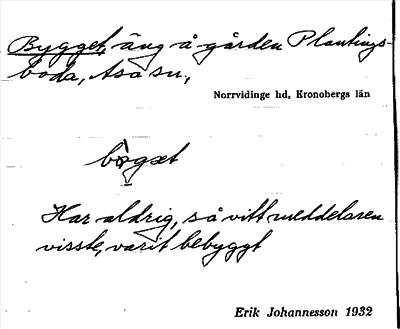 Bygget, äng å gården Plantings-
boda, Asa sn.,
Norrvidinge hd, Kronobergs län
Har aldrig, så vitt meddelaren
visste, varit bebyggt
Erik Johannesson 1932